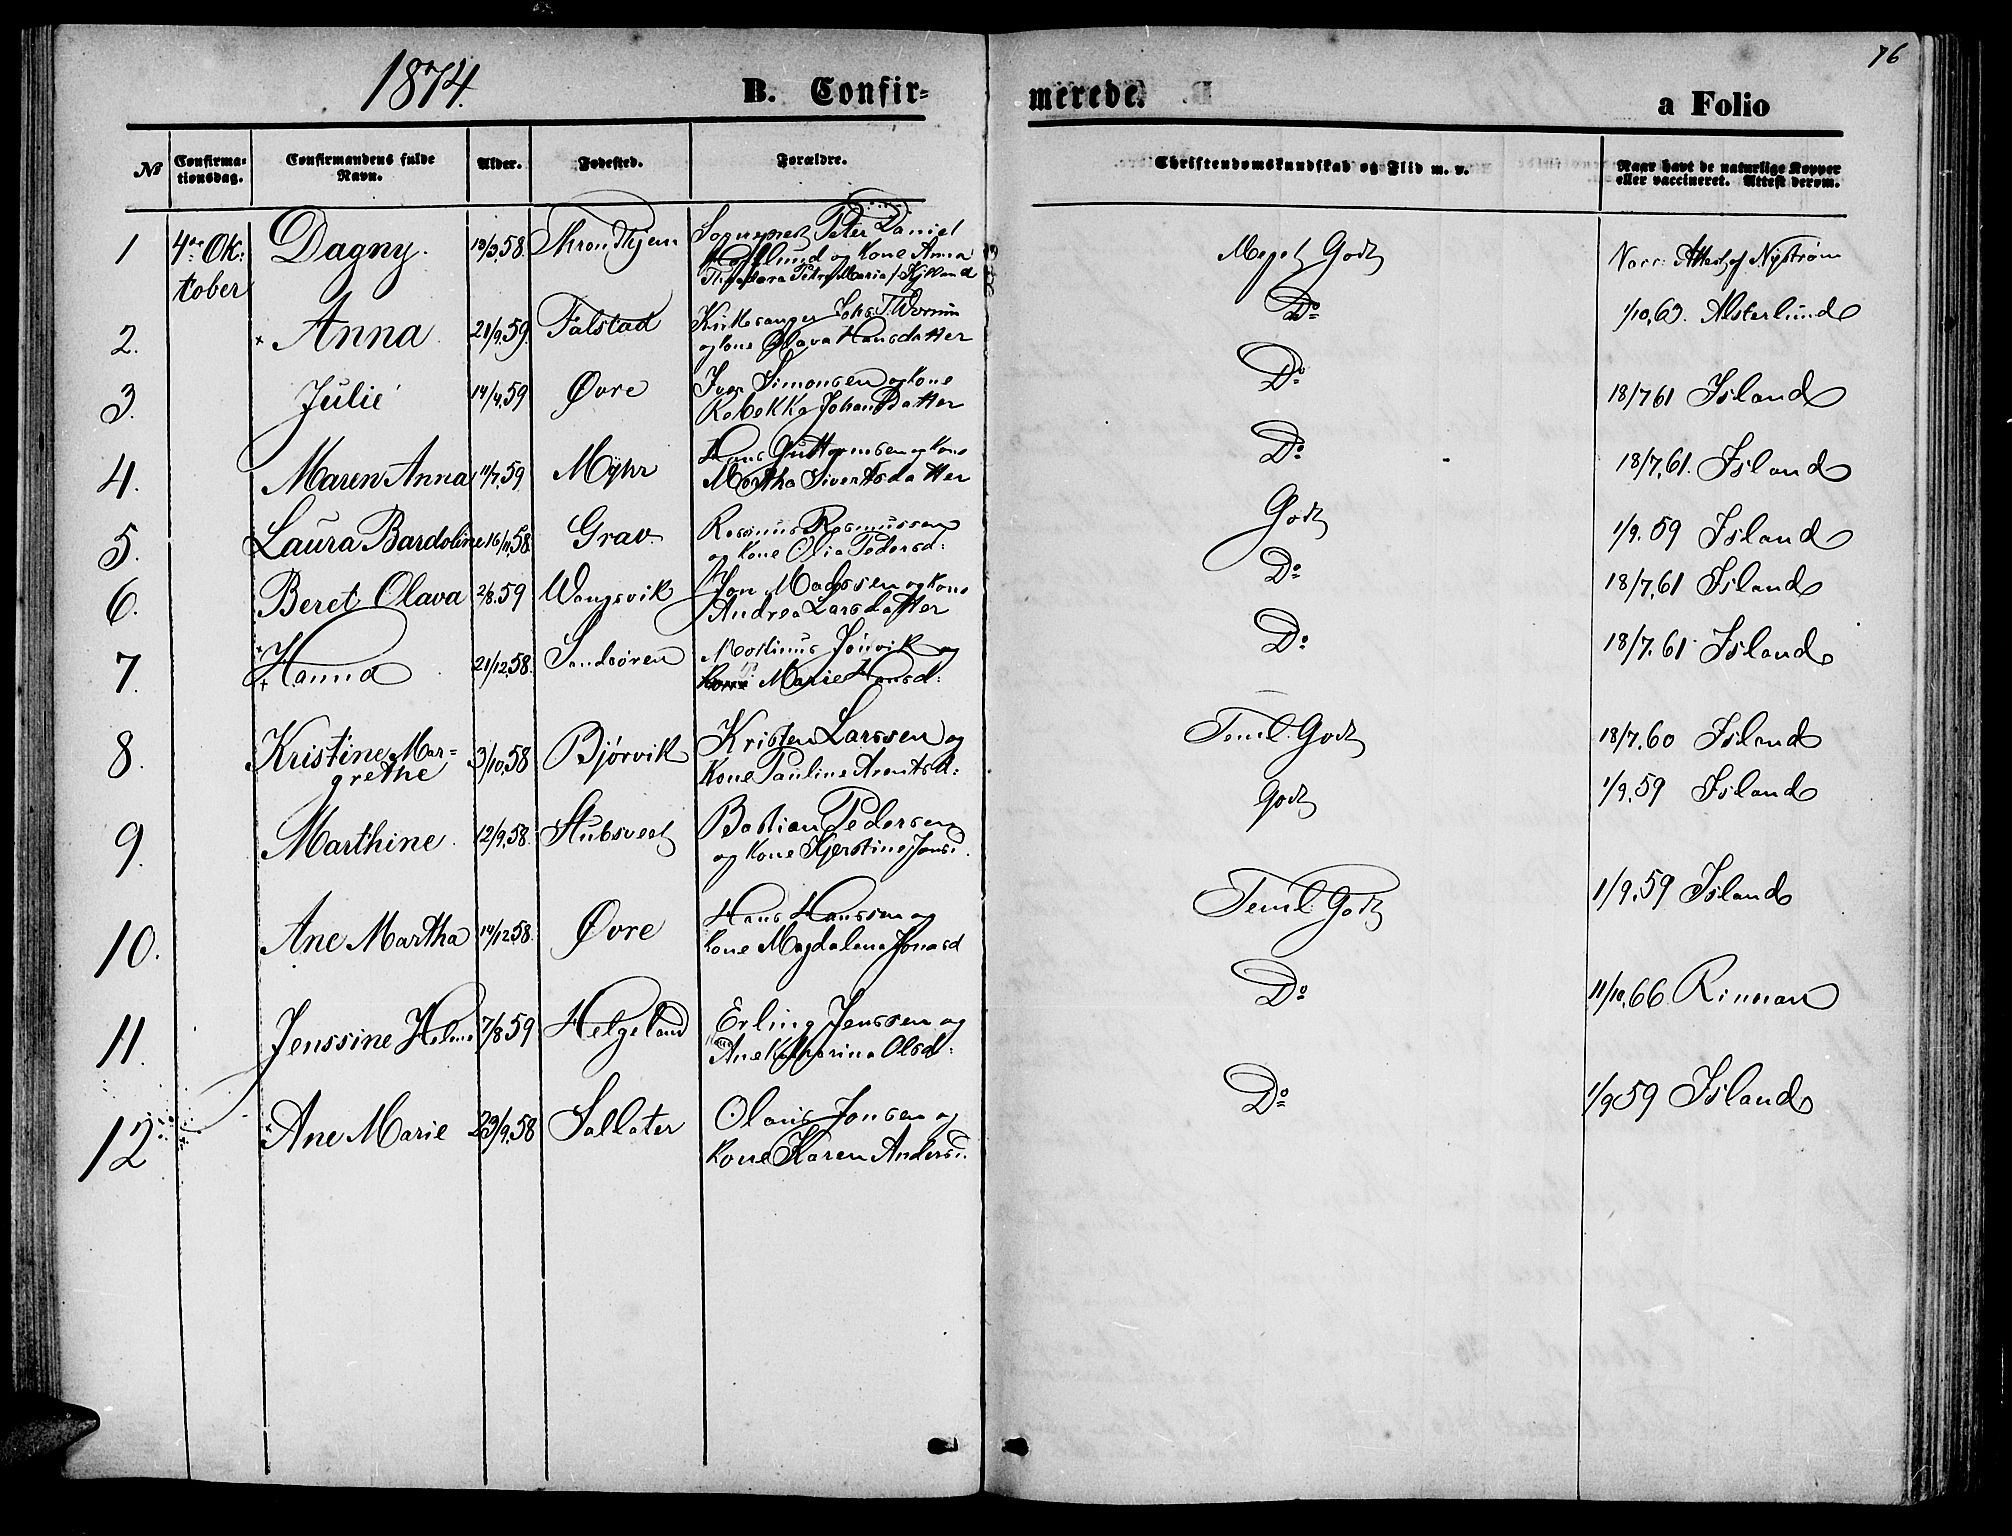 76
1874.
B. Confir-
merede.
a Folio
No
Confirma-
tionsdag.
Confirmandens fulde
Navn.
Alder.
Fødested.
Forældre.
Christendomskundskab og Flid m. v.
Naar havt de naturlige Kopper
eller vaccineret. Attest derom.
1 4de Ok: Dagny. Throndhjem Sognepræst Peter Daniel Meget Godt Vacc: Attest af Nystrøm
tober og Kone Anna
Petra Maria
2. Anna 21/9.59 Falstad Kirkesanger Johs T. 1/10.63. Alsterlund
og Kone Olava Hansdatter Do
3. Julie 14/4.59 Øvre Iver Simonsen og Kone Do 18/7 61 Island
Rebekka Johansdatter
4. Maren Anna 11/7.59 Myhr Hans Guttormsen og Kone Do 18/7.61. Island
Martha Sivertsdatter
5. Laura Bardoline 16/11.58 Grav Rasmus Rasmussen Godt 1/9.59 Island
og Kone Olia Pedersd:
6. Beret Olava 2/8.59 Vangsvik Jon Madssen og Kone Do 18/7.61 Island
Andrea Larsdatter
7. Hanna 21/12.58 Sandsøren Martinus Jønvik og Do 18/7.61 Island
Marie Hansd:
8. Kristine Mar= 3/10.58 Bjørvik Kristen Larssen og Teml. Godt 18/7.60 Island
grethe Kone Pauline Arentsd:
9. Marthine. 12/9.58 Stubsveet Bastian Pedersen Godt 1/9.59 Island
og Kone Kjerstine Jonsd.
10. Ane Martha 14/12.58. Øvre Hans Hanssen og Teml. Godt 1/9.59 Island
Kone Magdalena Jonasd
11. Jenssine 7/8 59 Helgeland Erling Jenssen og Do 11/10.66 Rinnan
Ane Katharina Olsd:
12 Ane Marie 29/9.58 Sallater Olaus Jonsen og Do 1/9 59 Island
Kone Karen Andersd.